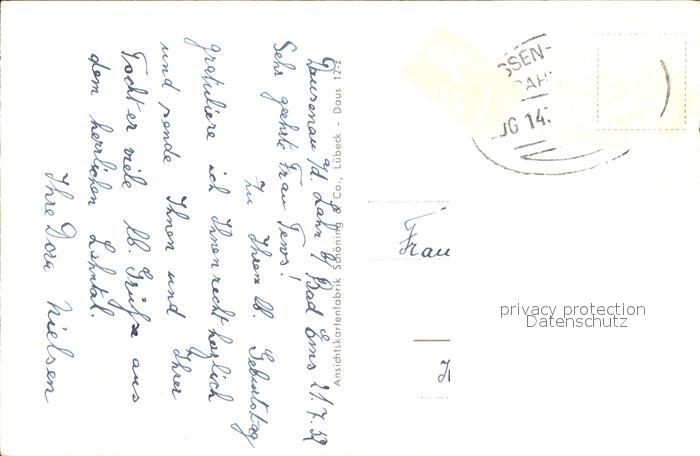 Dausenau a/d. Lahn b/ Bad Ems 21.7.59
Sehr geehrte Frau Tews!
Zu Ihrem lb. Geburtstag
gratuliere ich Ihnen recht herzlich
und sende Ihnen und Ihrer
Tochter viele lb. Grüße aus
dem herrlichen Lahntal.
Ihre Dora Nielsen
Ansichtskartenfabrik Schöning & Co., Lübeck - Daus 12z
SSEN-
BAH
UG 14
Frau
privacy protection
Datenschutz